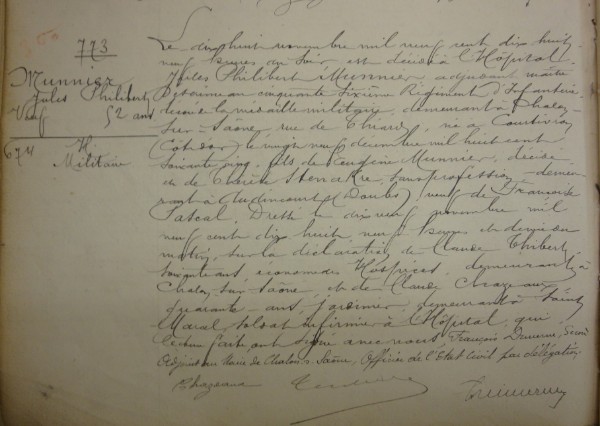 773
Munnier
Jules Philibert
Veuf 52 ans
674 H.
Militaire
Le dix huit novembre mil neuf cent dix huit,
neuf heures du soir, est décédé à l'Hôpital
Jules Philibert Munnier, adjudant maître
au cinquante sixième Régiment d'Infanterie
décoré de la médaille militaire, demeurant à Chalon-
sur-Saône, rue de Thiard, né à Courtivron
(Côte d'or) le vingt neuf décembre mil huit cent
soixante cinq, fils de Eugène Munnier, décédé
et de Thérèse sans profession, demeu-
rant à Audincourt (Doubs), veuf de Françoise
Pascal. Dressé le dix neuf novembre mil
neuf cent dix huit, neuf heures et demie du
matin, sur la déclaration de Claude Thibert
soixante ans, économe des Hospices, demeurant à
Chalon-sur-Saône, et de Claude Chazeaux
quarante ans, jardinier, demeurant à Saint
Marcel, soldat infirmier à l'Hôpital, qui
lecture faite ont signé avec nous François second
Adjoint au Maire de Chalon s. Saône, Officier de l'Etat Civil par délégation.
Chazeaux